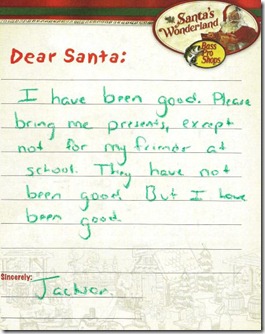 Santa's
Wonderland
Bass
Pro
Shops
Dear Santa:
I have been good. Please
bring me presents, except
not for my friends at
school. They have not
been good. But I have
been good.
Sincerely:
Jackson